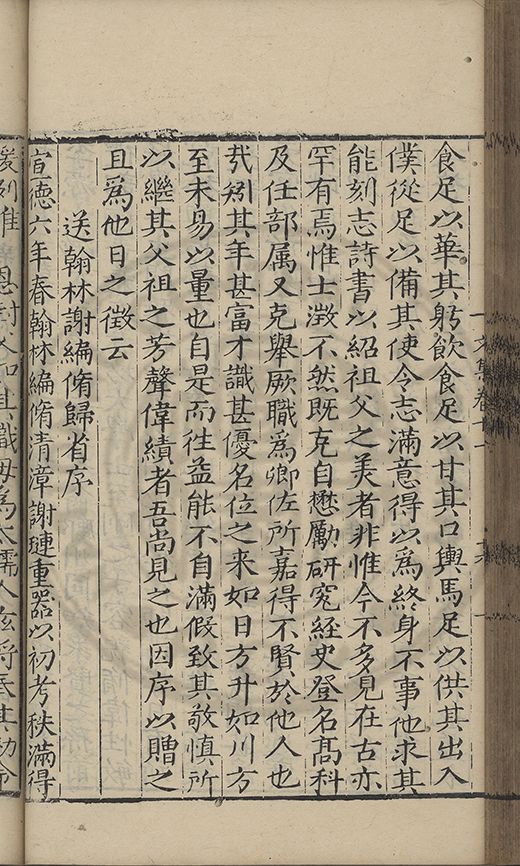 文集卷十一
食足以華其躬飲食足以甘其口輿馬足以供其出入
僕從足以備其使令志滿意得以爲終身不事他求其
能刻志詩書以紹祖父之美者非惟今不多見在古亦
罕有焉惟士澂不然既克自懋勵研究経史登名髙科
及任部属又克舉厥職爲卿佐所嘉得不賢於他人也
㦲矧其年甚富才識甚優名位之来如日方升如川方
至未易以量也自是而徃益能不自滿假致其敬慎所
以繼其父祖之芳聲偉績者吾尚見之也因序以贈之
且爲他日之徵云
送翰林謝編脩歸省序
宣徳六年春翰林編脩清漳謝璉重器以初考秩滿得